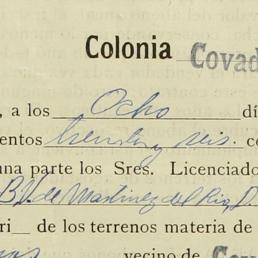 Colonia Covad
, a los Ocho dí
entos treinta y seis. co
una parte los Sres. Licenciado
B.V. de Martinez del Rio, D.
ri de los terrenos materia de
vecino de Cov